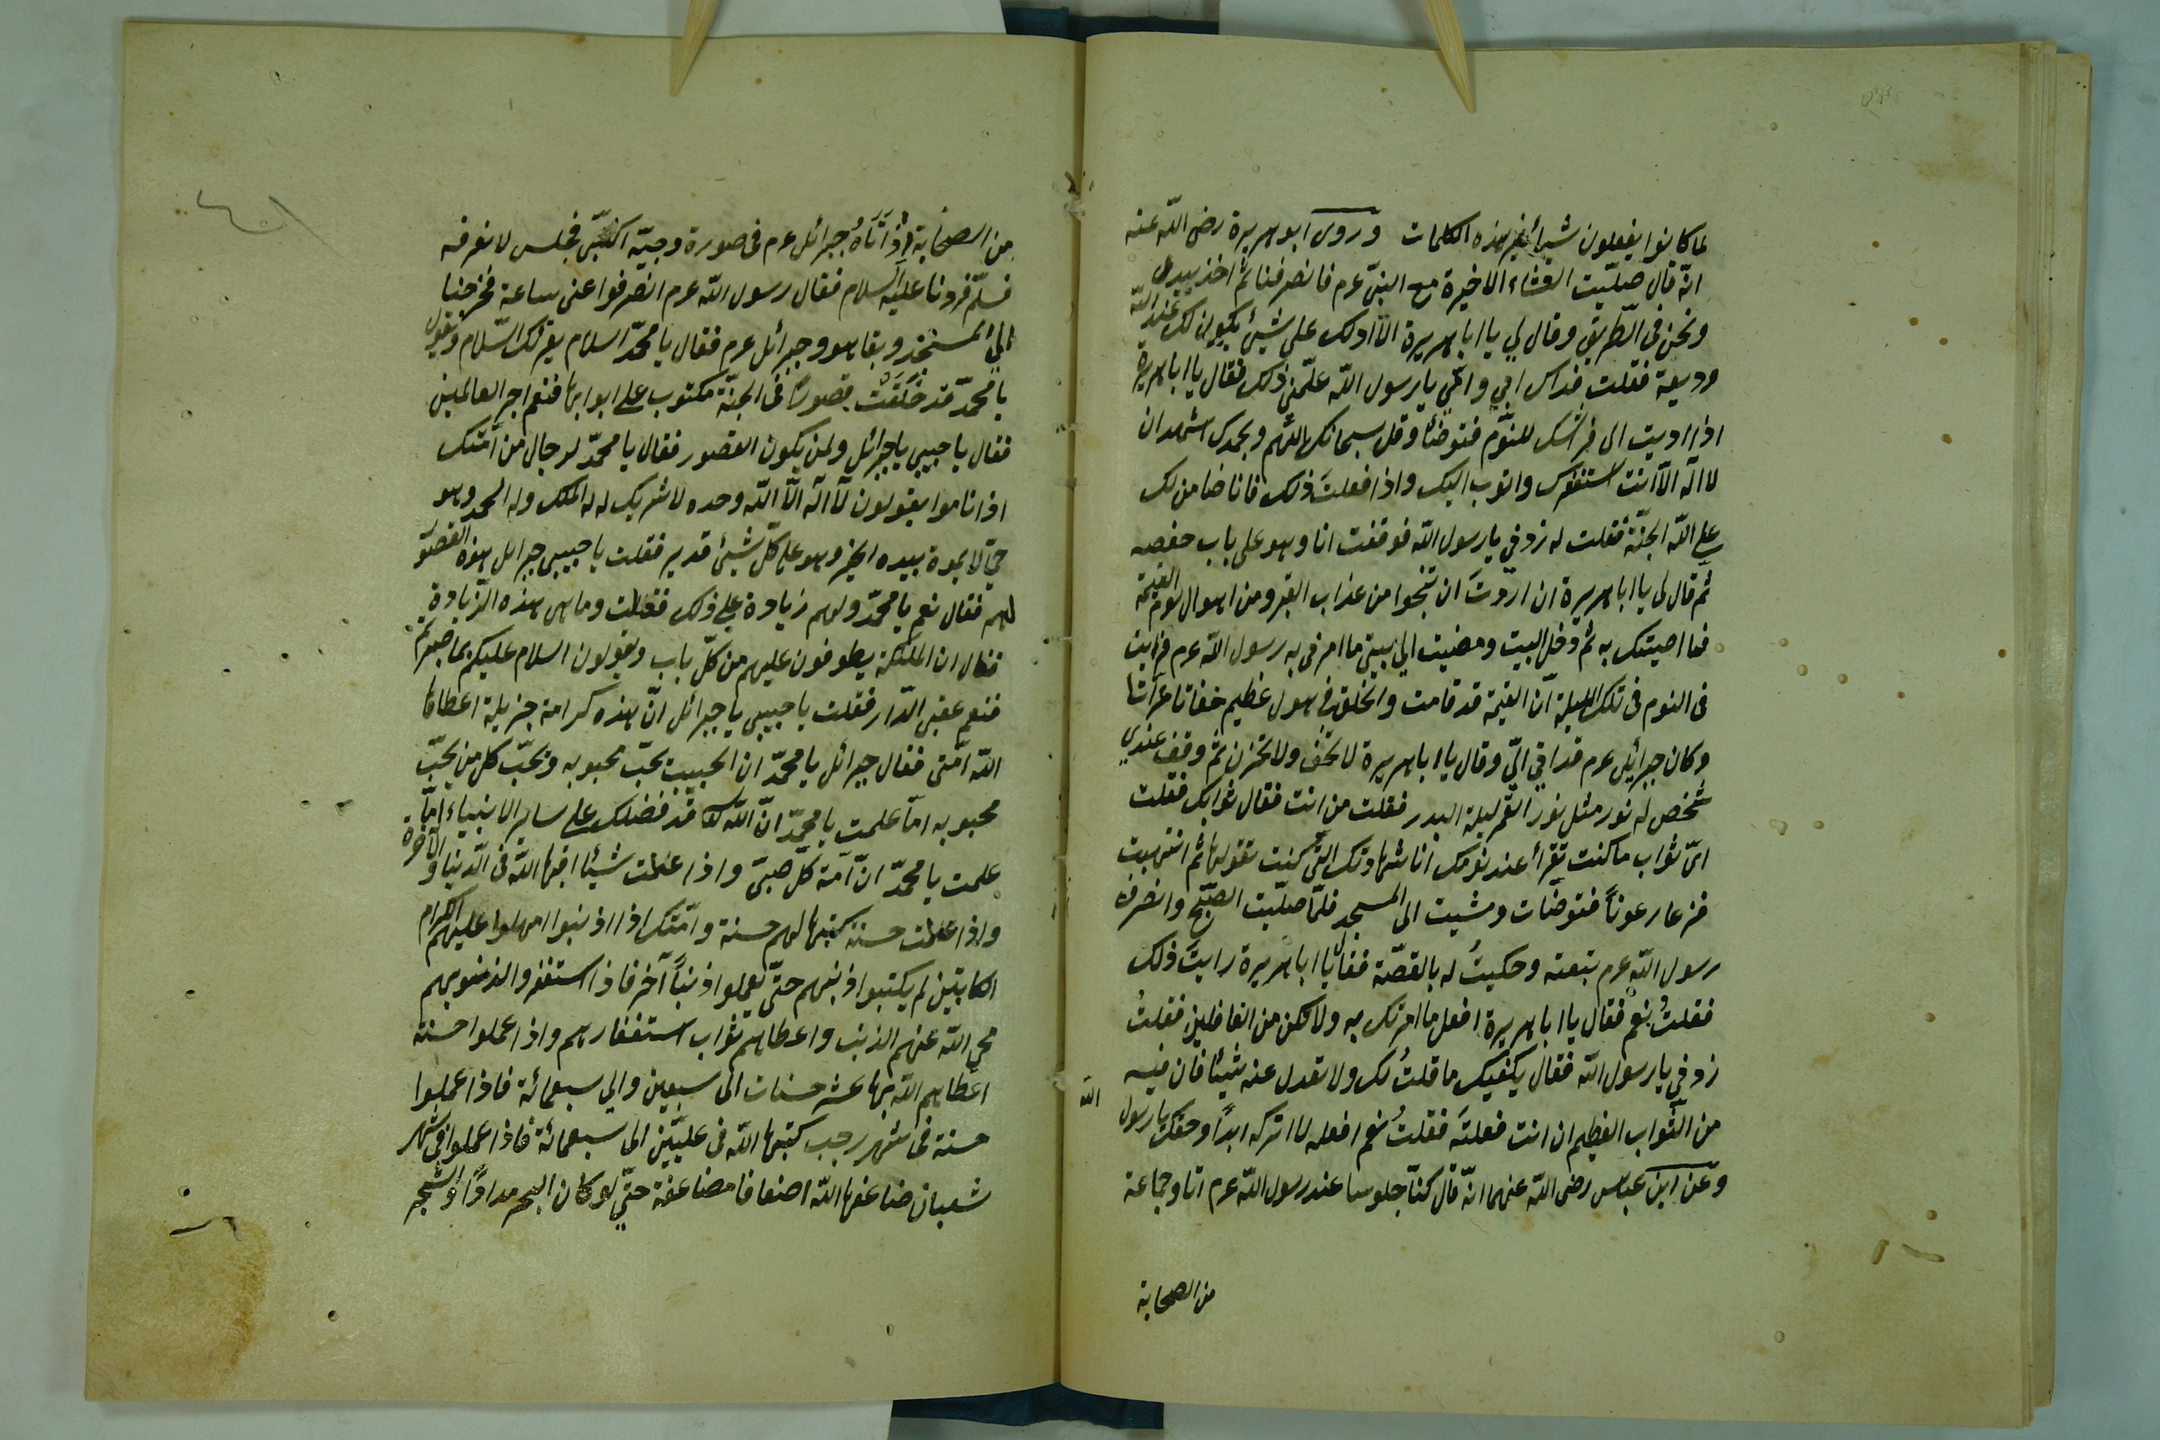 لما كانوا يفعلون شيأ غير هذه الكلمات وروى ابو هريرة رضى الله عنه
انه قال صليت العشاء الاخيرة مع النبى عرم فانصرفنا ثم اخذ بيدى
ونحن فى الطريق وقال لي يا ابا هريرة الا ادلك على شيئ يكون لك عند الله
وديعة فقلت فداك ابي وامي يا رسول الله علمنى ذلك فقال يا ابا هريرة
اذا اويت الى فراشك للنوم فتوضئا وقل سبحانك اللهم وبحمدك اشهد ان
لا اله الا انت استغفرك واتوب اليك واذا فعلت ذلك فانا ضامن لك
على الله الجنة فقلت له زدني يا رسول الله فوقفت انا وهو على باب حفصه
ثم قال لى يا ابا هريرة ان اردت ان تنجوا من عذاب القبر ومن اهوال يوم القيمة
فما اصيتك به ثم دخل البيت ومضيت الي بيتى ما امرنى به رسول الله عرم فرايت
فى النوم فى تلك الليلة ان القيمة قد قامت والخلق في هول عظيم حفاتا عراتا
وكان جبرائيل عرم قد اقي الي وقال يا ابا هريرة لا تخف ولا تحزن ثم وقف عندى
شخص له نور مثل نور القمر ليلة البدر فقلت من انت فقال ثوابك فقلت
اى ثواب ما كنت تقرأ عند نومك انا شهادتك التى كنت تقولها ثم انتبهت
فزعا رعوبا فتوضأت ومشيت الى المسجد فلما صليت الصبح وانصرف
رسول الله عرم تبعته وحكيت له بالقصة فقال يا ابا هريرة رايت ذلك
فقلت نعم فقال يا ابا هريرة افعل ما امرتك به ولا تكن من الغافلين فقلت
زدني يا رسول الله فقال يكفيك ما قلت لك ولا تعدل عنه شيئا فان فيه
من الثواب العظيم ان انت فعلته فقلت نعم افعله لا اتركه ابدا وحقك يا رسول
الله
وعن ابن عباس رضى الله عنهما انه قال كنا جلوسا عند رسول الله عرم انا وجماعة
من الصحابة
من الصحابة اذ اتاه جبرائل عرم فى صورة دحية الكلبى فجلس لا نعرفه
فسلم فردنا عليه السلام فقال رسول الله عرم انصرفوا عنى ساعة فخرجنا
الي المسجد وبقا هو وجبرائل عرم فقال يا محمد السلام يقرئك السلام ويقول
يا محمد قد خلقت قصورا فى الجنة مكتوب على ابوابها فنعم اجر العالمين
فقال يا حبيبي يا جبرائل ولمن يكون القصور فقال يا محمد لرجال من امتك
اذا ناموا يقولون لا اله الا الله وحده لا شريك له له الملك وله الحمد وهو
حي لا يموة بيده الخير وهو على كل شيئ قدير فقلت يا حبيبى جبرائل هذه القصور
لهم فقال نعم يا محمد ولهم زيادة على ذلك فقلت وما هى هذه الزيادة
فقال ان الملئكة يطوفون عليهم من كل باب ويقولون السلام عليكم بما صبرتم
فنعم عقبى الدار فقلت يا حبيبي يا جبرائل ان هذه كرامة جزيلة اعطاها
الله امتى فقال جبرائل يا محمد ان الحبيب يحب محبوبه ويحب كل من يحب
محبوبه اما علمت يا محمد ان الله قد فضلك على ساير الانبياء اما
علمت يا محمد ان امة كل صبى واذا عملت شيئا اثبتها الله فى الدنيا والآخرة
واذا عملت حسنة كتبها لهم حسنة وامتك اذا اذنبوا امهلوا عليهم الكرام
الكاتبين لم يكتبوا ذنبهم حتى يعملوا ذنبا آخر فاذا استغفروا لذنوبهم
محى الله عنهم الذنب واعطاهم ثواب استغفارهم واذا عملوا حسنة
اعطاهم الله بها عشر حسنات الى سبعين والي سبعمائة فاذا عملوا
حسنة فى شهر رجب كتبها الله فى عليين الى سبعمائة فاذا عملوا فى شهر
شعبان ضاعفها الله اضعافا مضاعفة حتى لو كان البحر مدادا والشجر